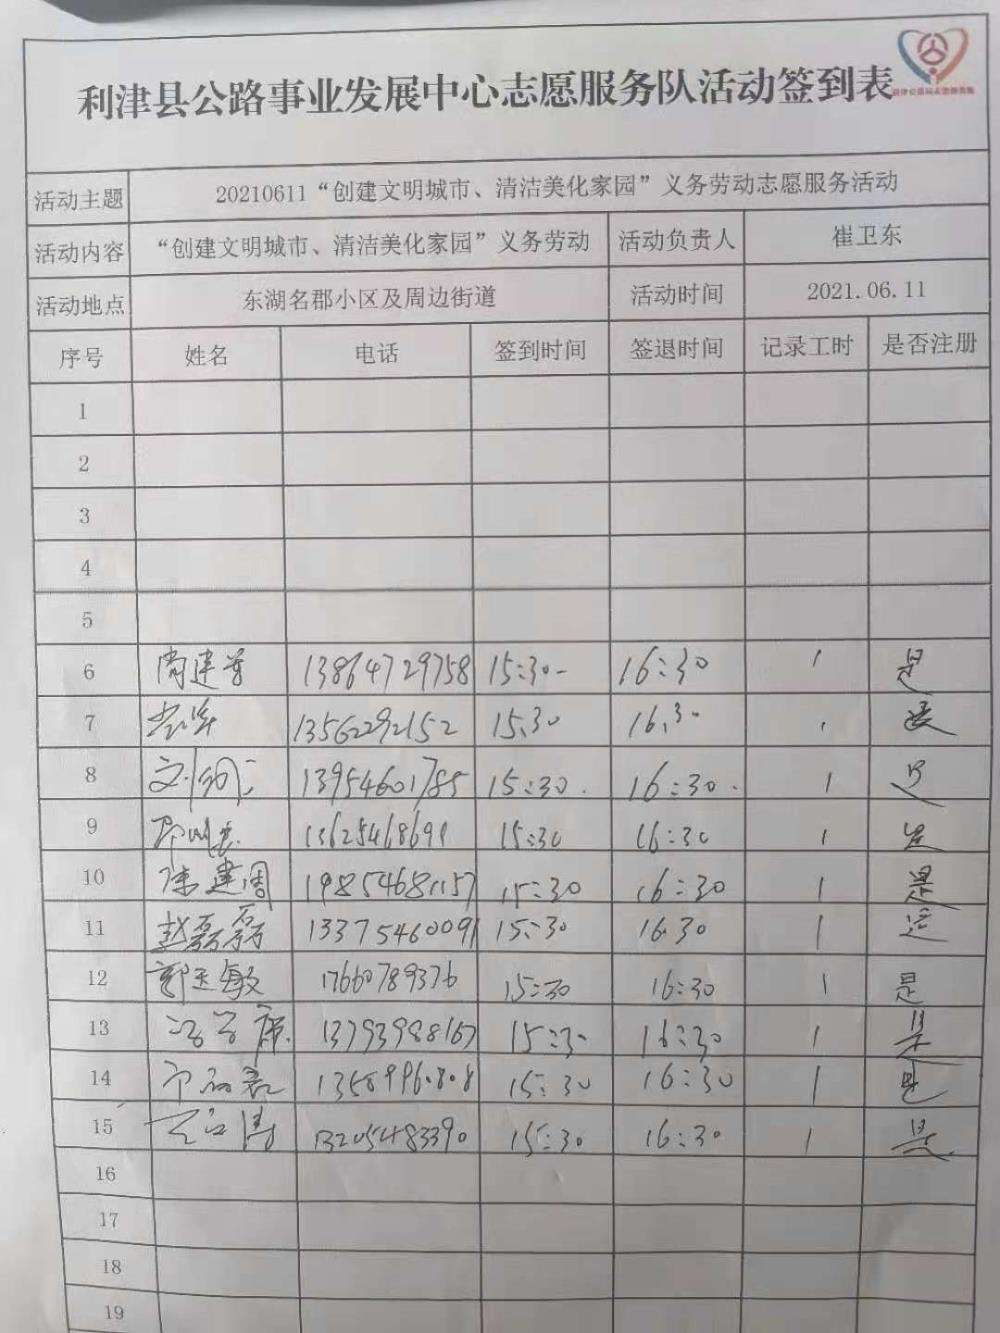 利津县公路事业发展中心志愿服务队活动签到表
活动主题 20210611“创建文明城市、清洁美化家园”义务劳动志愿服务活动
活动内容 “创建文明城市、清洁美化家园”义务劳动 活动负责人 崔卫东
活动地点 东湖名郡小区及周边街道 活动时间 2021.06.11
序号 姓名 电话 签到时间 签退时间 记录工时 是否注册
1
2
3
4
5
6 13864729758 15:30 16:30 1 是
7 13562292152 15:30 16:30 1 是
8 13954601785 15:30 16:30 1 是
9 13625468691 15:30 16:30 1 是
10 陈建周 19854681157 15:30 16:30 1 是
11 赵磊磊 13375460091 15:30 16:30 1 是
12 郭玉敏 17660789376 15:30 16:30 1 是
13 13793988167 15:30 16:30 1 是
14 15:30 16:30 1 是
15 13205483390 15:30 16:30 1 是
16
17
18
19